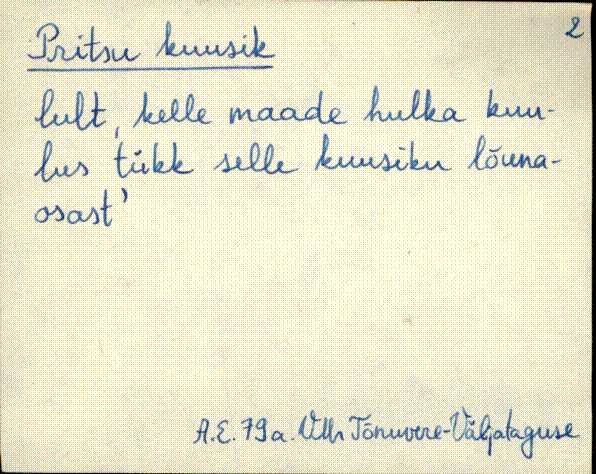 2
Pritsu kuusik
lult, kelle maade hulka kuu-
lus tükk selle kuusiku lõuna-
osast'
A.E. 79a. VMr Tõnuvere-Väljataguse